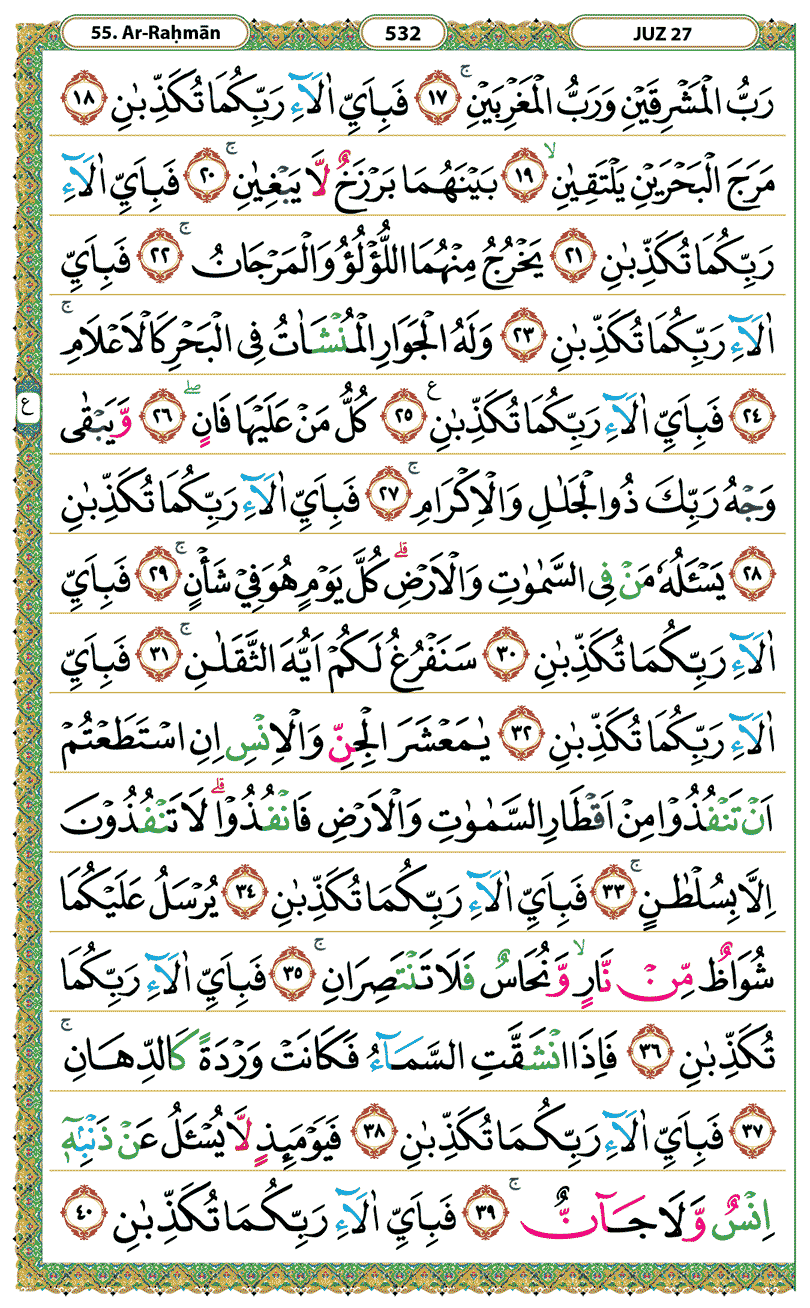 55. Ar-Raḥmān
532
JUZ 27
رَبُّ الْمَشْرِقَيْنِ وَرَبُّ الْمَغْرِبَيْنِۚ ١٧ فَبِاَيِّ اٰلَاۤءِ رَبِّكُمَا تُكَذِّبٰنِ ١٨
مَرَجَ الْبَحْرَيْنِ يَلْتَقِيٰنِۙ ١٩ بَيْنَهُمَا بَرْزَخٌ لَّا يَبْغِيٰنِۚ ٢٠ فَبِاَيِّ اٰلَاۤءِ
رَبِّكُمَا تُكَذِّبٰنِ ٢١ يَخْرُجُ مِنْهُمَا اللُّؤْلُؤُ وَالْمَرْجَانُۚ ٢٢ فَبِاَيِّ
اٰلَاۤءِ رَبِّكُمَا تُكَذِّبٰنِ ٢٣ وَلَهُ الْجَوَارِ الْمُنْشَاٰتُ فِى الْبَحْرِ كَالْاَعْلَامِۚ
٢٤ فَبِاَيِّ اٰلَاۤءِ رَبِّكُمَا تُكَذِّبٰنِ ࣖ ٢٥ كُلُّ مَنْ عَلَيْهَا فَانٍۖ ٢٦ وَّيَبْقٰى
ع
وَجْهُ رَبِّكَ ذُو الْجَلٰلِ وَالْاِكْرَامِۚ ٢٧ فَبِاَيِّ اٰلَاۤءِ رَبِّكُمَا تُكَذِّبٰنِ
٢٨ يَسْـَٔلُهٗ مَنْ فِى السَّمٰوٰتِ وَالْاَرْضِۗ كُلَّ يَوْمٍ هُوَ فِيْ شَأْنٍۚ ٢٩ فَبِاَيِّ
اٰلَاۤءِ رَبِّكُمَا تُكَذِّبٰنِ ٣٠ سَنَفْرُغُ لَكُمْ اَيُّهَ الثَّقَلٰنِۚ ٣١ فَبِاَيِّ
اٰلَاۤءِ رَبِّكُمَا تُكَذِّبٰنِ ٣٢ يٰمَعْشَرَ الْجِنِّ وَالْاِنْسِ اِنِ اسْتَطَعْتُمْ
اَنْ تَنْفُذُوْا مِنْ اَقْطَارِ السَّمٰوٰتِ وَالْاَرْضِ فَانْفُذُوْاۗ لَا تَنْفُذُوْنَ
اِلَّا بِسُلْطٰنٍۚ ٣٣ فَبِاَيِّ اٰلَاۤءِ رَبِّكُمَا تُكَذِّبٰنِ ٣٤ يُرْسَلُ عَلَيْكُمَا
شُوَاظٌ مِّنْ نَّارٍۙ وَّنُحَاسٌ فَلَا تَنْتَصِرَانِۚ ٣٥ فَبِاَيِّ اٰلَاۤءِ رَبِّكُمَا
تُكَذِّبٰنِ ٣٦ فَاِذَا انْشَقَّتِ السَّمَاۤءُ فَكَانَتْ وَرْدَةً كَالدِّهَانِۚ
٣٧ فَبِاَيِّ اٰلَاۤءِ رَبِّكُمَا تُكَذِّبٰنِ ٣٨ فَيَوْمَىِٕذٍ لَّا يُسْـَٔلُ عَنْ ذَنْۢبِهٖٓ
اِنْسٌ وَّلَا جَاۤنٌّۚ ٣٩ فَبِاَيِّ اٰلَاۤءِ رَبِّكُمَا تُكَذِّبٰنِ ٤٠